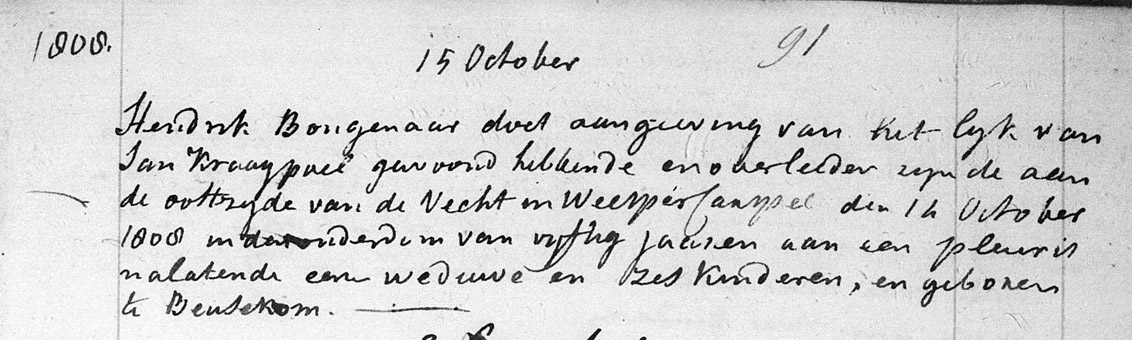 1808.
15 October 91
Hendrik Bongenaar doet aangeeving van het lyk van
Jan Kraaypoel gewoond hebbende en overleeden zynde aan
de oostzyde van de Vecht in Weesper Carspel den 14 October
1808 in den ouderdom van vyftig jaaren aan een pleuris
nalatende eene weduwe en zes kinderen, en geboren
te Beusekom.